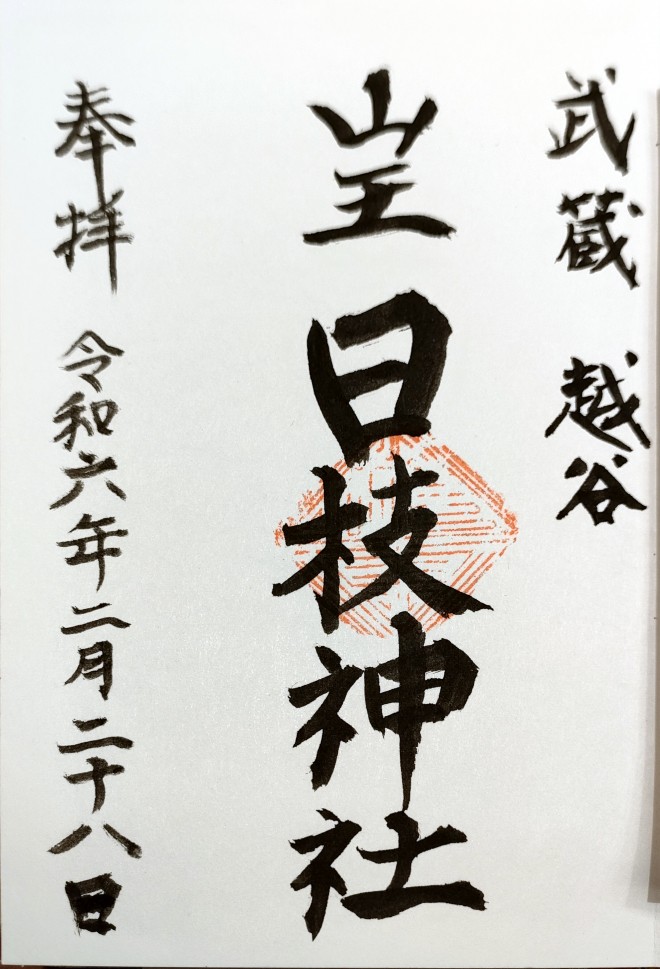 武蔵 越谷
山王 日枝神社
奉拝 令和六年二月二十八日